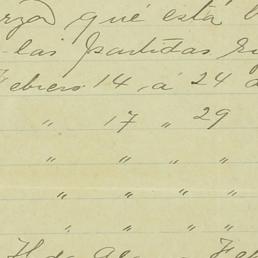 qué está
las partidas
Febrero 14 á 24
" 17 " 29
" " " "
" " " "
" " " "